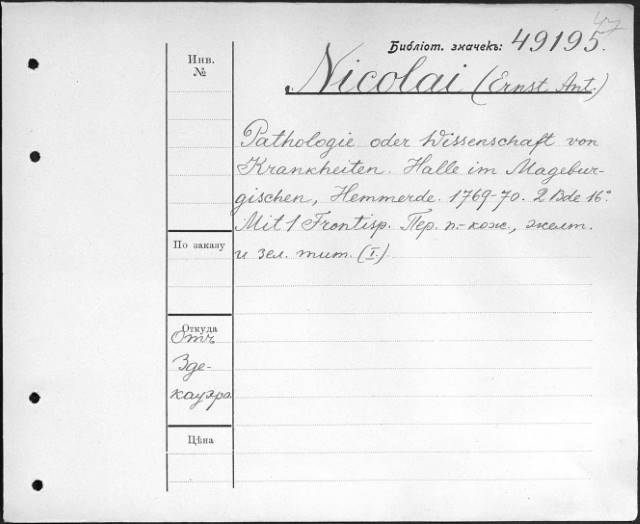 47
Библіот. значекъ: 49195.
Инв.
№
Nicolai (Ernst Ant.)
Pathologie oder Wissenschaft von
Krankheiten. Halle im Magebur-
gischen, Hemmerde. 1769-70. 2 Bde 16°.
Mit 1 Frontisp. Пер. п.-кож., желт.
и зел. тит. (I.)
По заказу
Откуда
Отъ
Зде-
кауэра
Цѣна